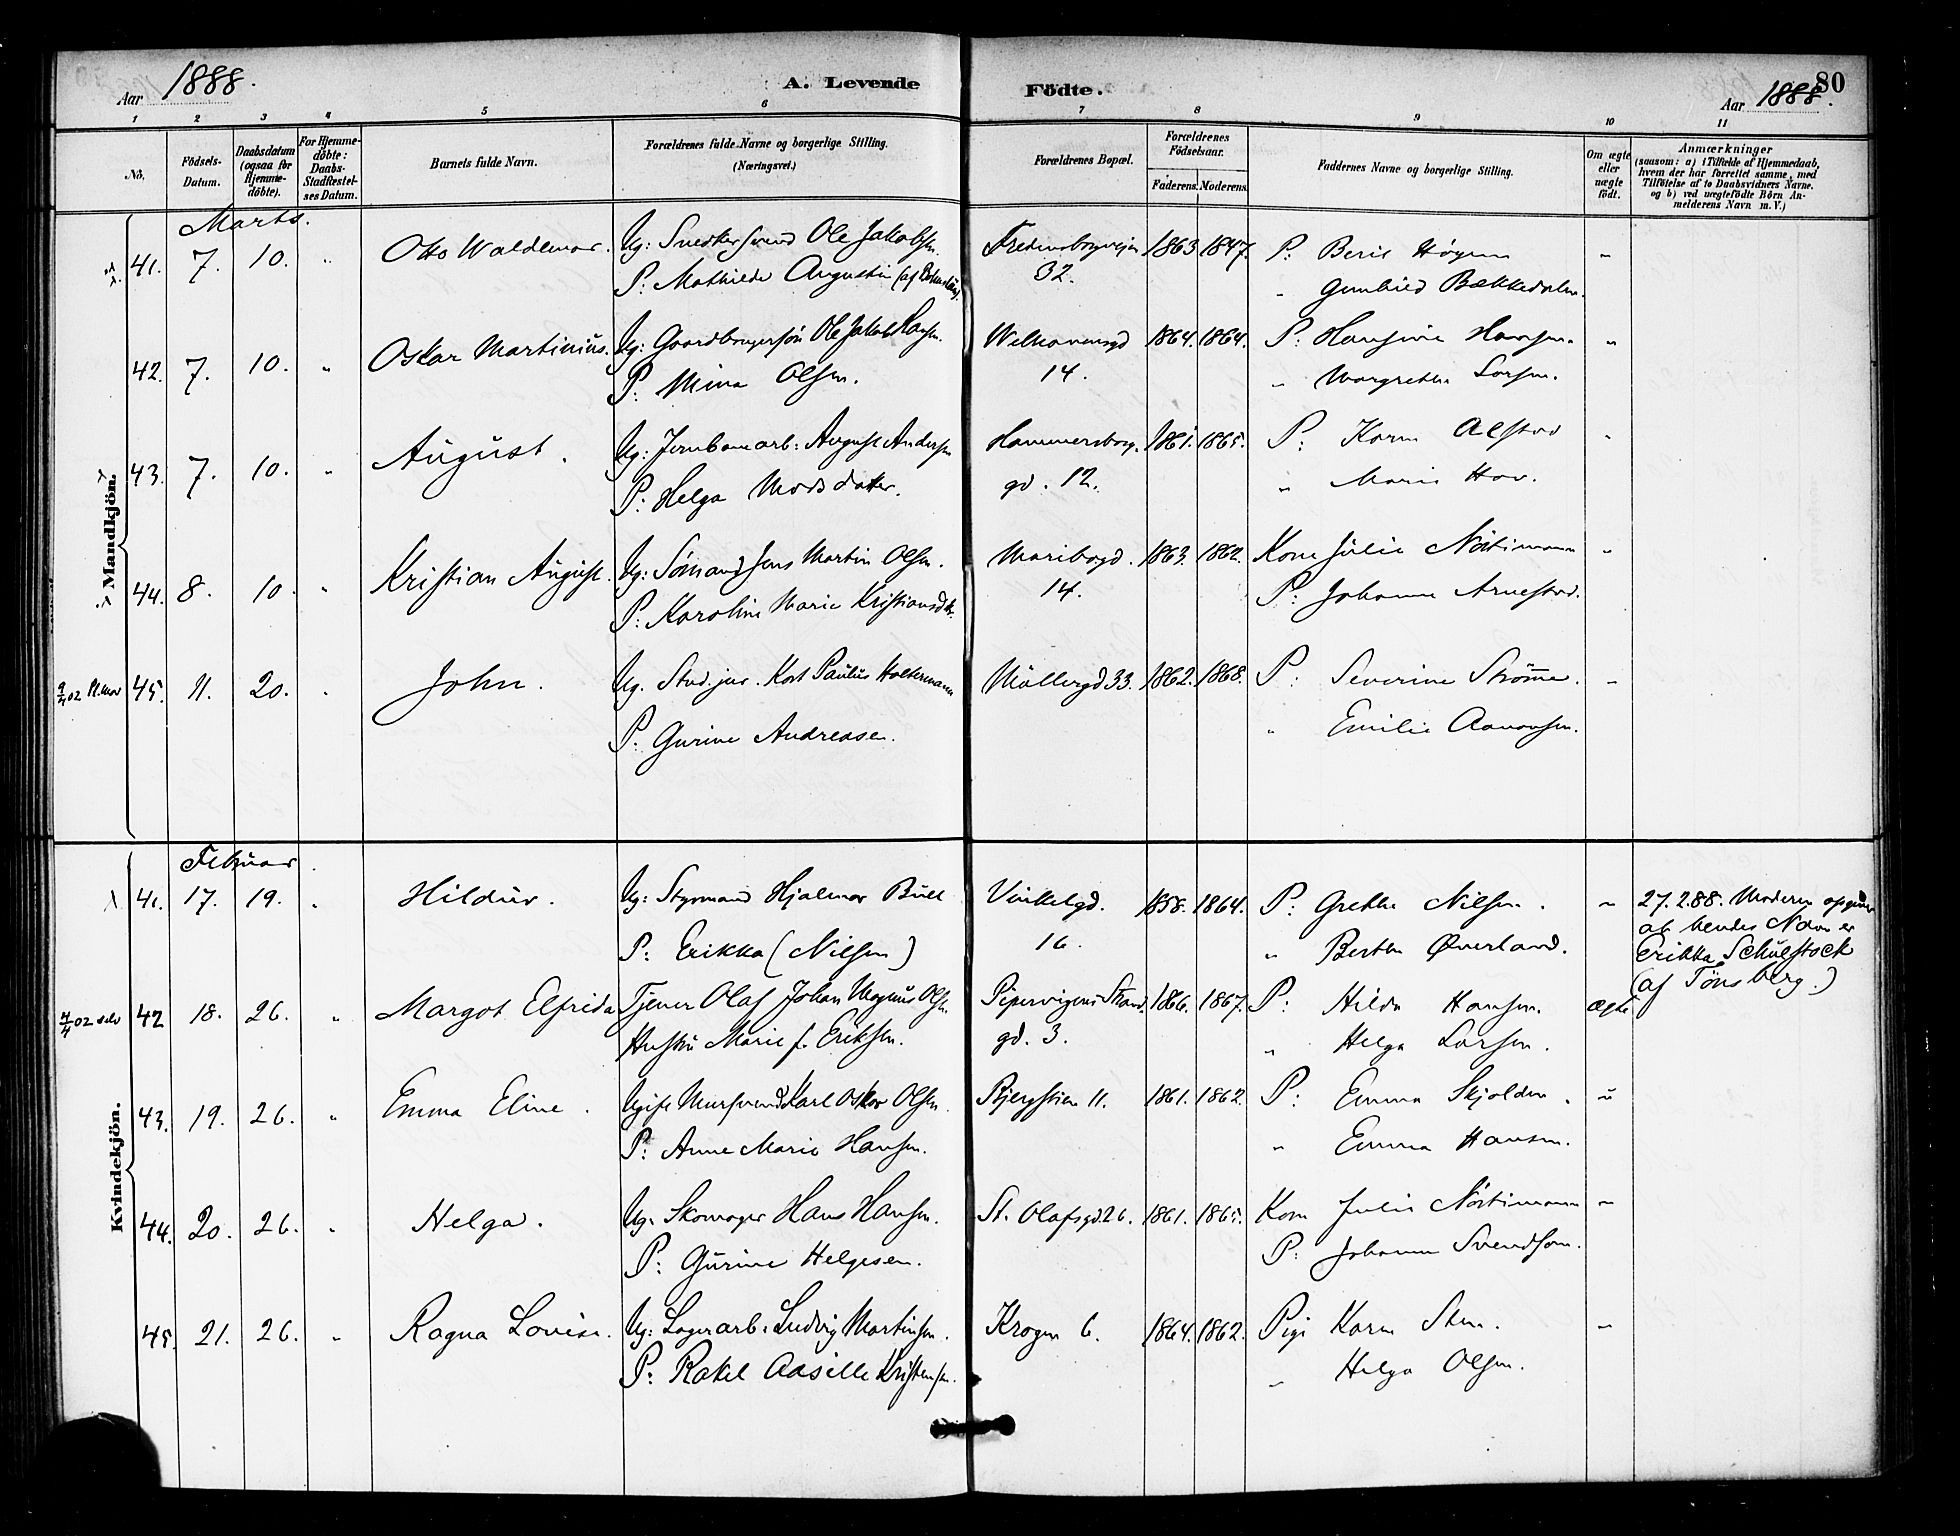 Aar 1888.
A. Levende Födte.
Aar 1888.
80
1 2 3 4 5 6 7 8 9 10 11
No.
Födsels-Datum.
Daabsdatum (ogsaa for Hjemme-döbte).
For Hjemme-döbte: Daabs-Stadfæstel-ses Datum.
Barnets fulde Navn.
Forældrenes fulde Navne og borgerlige Stilling. (Næringsvei.)
Forældrenes Bopæl.
Forældrenes Födselsaar.
Faderens. Moderens.
Faddernes Navne og borgerlige Stilling.
Om ægte eller uægte födt.
Anmærkninger
(saasom: a) i Tilfælde af Hjemmedaab,
hvem der har forrettet samme, med
Tilföielse af to Daabsvidners Navne.
og b) ved uægtefödte Börn An-
melderens Navn m. V.)
Mandkjön.
Marts.
41. 7. 10. " Otto Waldemar. Ug: Snedkersvend Ole Jakobsen Fredensborgveien 1863 1847. P: Berit Høgm "
P: Mathilde Augustin (af 32. " Gunhild Bækkedalen.
42. 7. 10. " Oskar Martinius. Ug: Gaardbrugersøn Ole Jakob Hansen. Welhavensgd 1864. 1864. P: Hansine Hansen. "
P: Mina Olsen. 14. " Margrethe Larsen.
43. 7. 10. " August. Ug: Jernbanearb: August Andersen Hammersborg. 1861. 1865. P: Karen Alstad "
P: Helga Madsdatter. gd. 12. " Marie Hov.
44. 8. 10. " Kristian August. Ug: Sömand Jens Martin Olsen. Maribogd. 1863. 1862. Kone Julie Nörtimann "
P: Karoline Marie Kristiansdtr. 14. P: Johanne Arnestad.
02 45. 11. 20. " John. Ug. Stud. jur. Kort Paulus Holtermann Möllergd 33. 1862. 1868. P: Severine Strömme. "
P: Gurine Andreasen. " Emilie Aanonsen.
Kvindekjön.
Februar.
41. 17. 19. " Hildur. Ug: Styrmand Hjalmar Bull Vinkelgd. 1858. 1864. P: Grethe Nilsen. " 27.2.88. Moderen opgiver
P: Erikka (Nilsen) 16 " Berthe Øverland. at hendes Navn er
Erikka Schulstock
(af Tönsberg.)
02 selv 42 18. 26. " Margot Elfrida Tjener Olaf Johan Magnus Olsen Pipervigens Strand. 1866. 1867. P: Hilda Hansen. ægte
Hustru Marie f. Eriksen. gd. 3. " Helga Larsen.
43. 19. 26. " Emma Eline. Ugift Mursvend Karl Oskar Olsen. Bjergstien 11. 1861. 1862. P: Emma Skjolden. u
P: Anne Marie Hansen. " Emma Hansen.
44. 20. 26. " Helga. Ug. Skomager Hans Hansen. St. Olafsgd 26. 1861. 1865. Kone Julie Nörtimann "
P: Gurine Helgesen. P: Johanne Svendsen.
45. 21. 26. " Ragna Lovise. Ug: Lagerarb: Ludvig Martinsen. Krogen 6. 1864. 1862. Pige Karen Sten. "
P: Rakel Aasille Kristensen. " Helga Olsen.